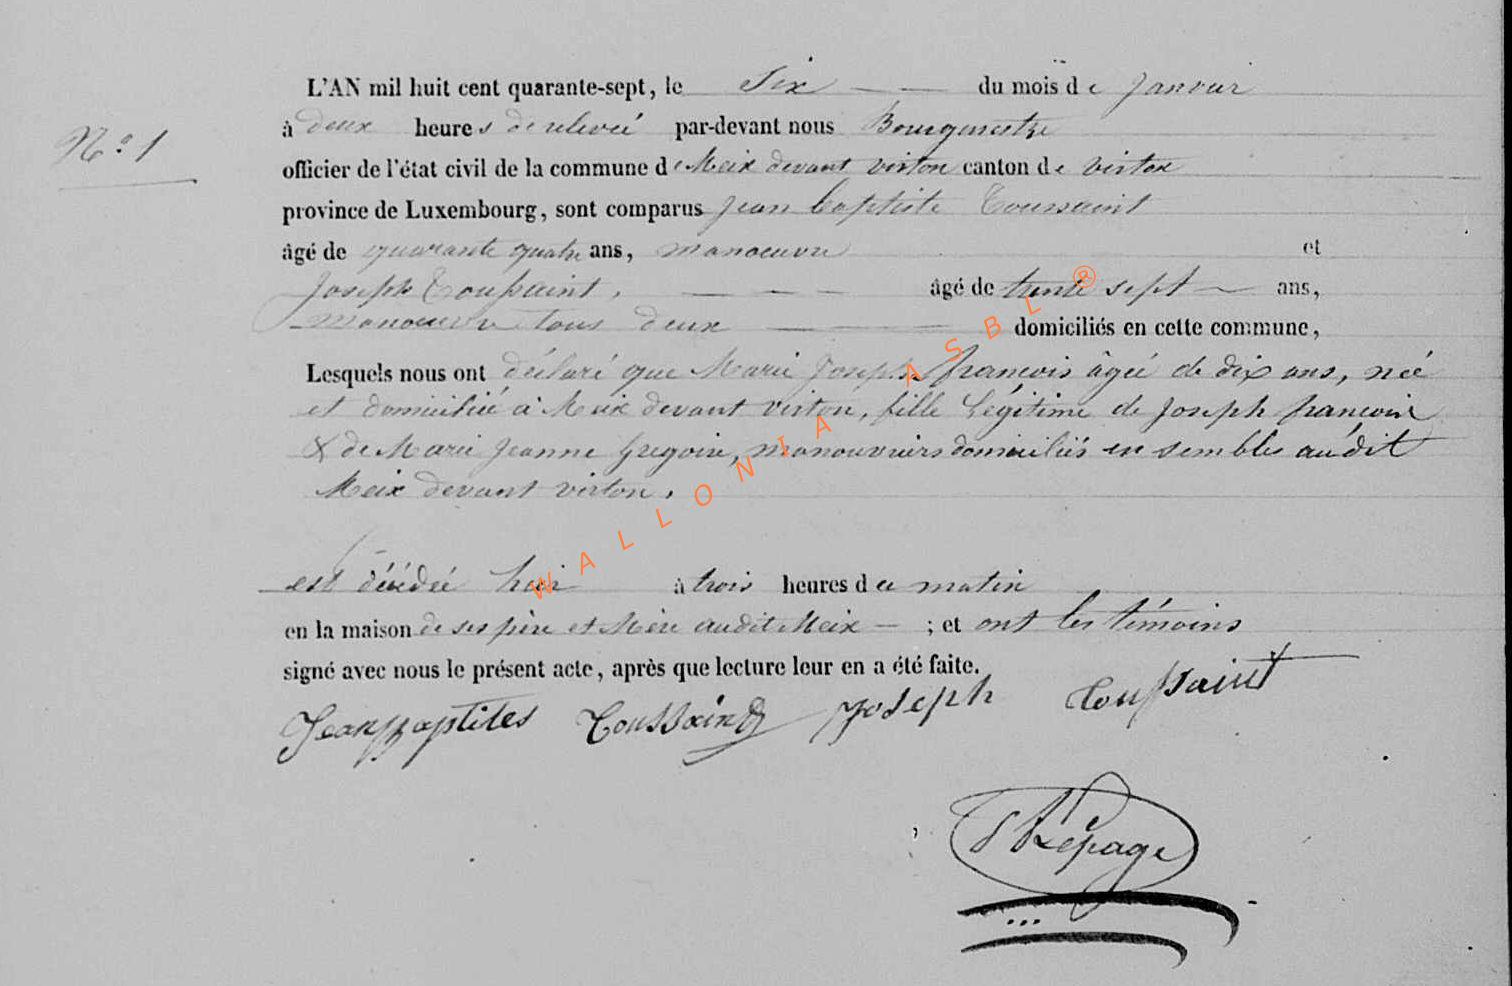 N.º 1
L'AN mil huit cent quarante-sept, le Six du mois de Janvier
à deux heures de relevée par-devant nous Bourgmestre
officier de l'état civil de la commune de Meix devant virton canton de virton
province de Luxembourg, sont comparus Jean baptiste Toussaint
âgé de quarante quatre ans, manoeuvre et
Joseph Toussaint, âgé de trente sept ans,
manoeuvre tous deux domiciliés en cette commune,
Lesquels nous ont déclaré que Marie Joseph françois âgée de dix ans, née
et domiciliée à Meix devant virton, fille légitime de Joseph françois
& de Marie Jeanne Gregoire, manouvriers domiciliés en sembles audit
Meix devant virton,
est décédée hui à trois heures du matin
en la maison de ses père et Mère audit Meix ; et ont les témoins
signé avec nous le présent acte, après que lecture leur en a été faite.
Jean Baptites Toussaind Joseph Toussaint
Lepage
WALLONIA ASBL ®